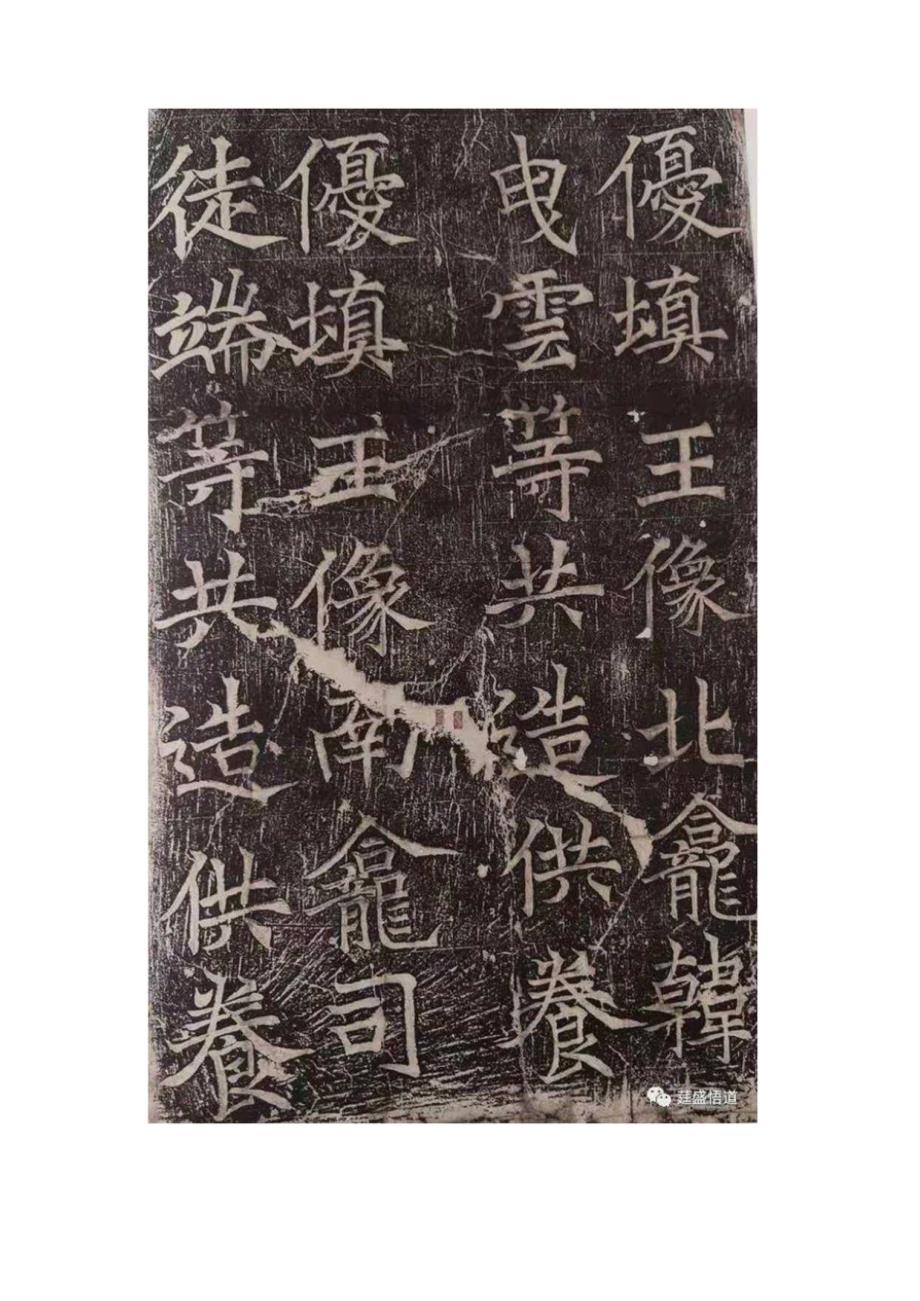 優填王像北龕韓
曳雲等共造供養
優填王像南龕司
徒端等共造供養
廷盛悟道